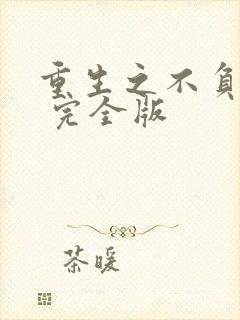 重生之不负
完全版
茶暖